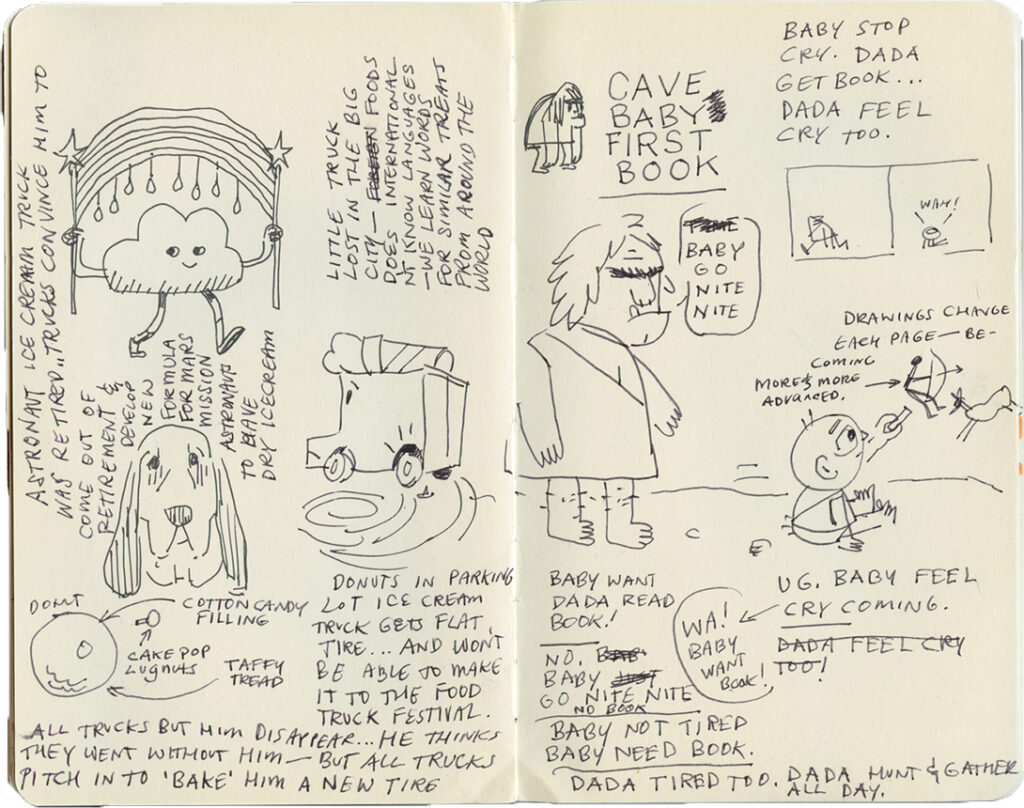 ASTRONAUT ICE CREAM TRUCK
WAS RETIRED.. TRUCKS CONVINCE HIM TO
COME OUT OF
RETIREMENT &
DEVELOP
NEW
FORMULA
FOR MARS
MISSION
ASTRONAUTS
TO HAVE
DRY ICECREAM
LITTLE TRUCK
LOST IN THE BIG
CITY — FOODS
DOES INTERNATIONAL
N'T KNOW LANGUAGES
— WE LEARN WORDS
FOR SIMILAR TREATS
FROM AROUND THE
WORLD
DONUT
COTTON CANDY
FILLING
CAKE POP
LUGNUTS
TAFFY
TREAD
DONUTS IN PARKING
LOT ICE CREAM
TRUCK GETS FLAT
TIRE... AND WON'T
BE ABLE TO MAKE
IT TO THE FOOD
TRUCK FESTIVAL.
ALL TRUCKS BUT HIM DISAPPEAR... HE THINKS
THEY WENT WITHOUT HIM — BUT ALL TRUCKS
PITCH IN TO 'BAKE' HIM A NEW TIRE
CAVE
BABY
FIRST
BOOK
BABY STOP
CRY. DADA
GET BOOK...
DADA FEEL
CRY TOO.
WAH!
BABY
GO
NITE
NITE
DRAWINGS CHANGE
EACH PAGE — BE-
COMING
MORE & MORE
ADVANCED.
BABY WANT
DADA READ
BOOK!
NO.
BABY
GO NITE NITE
NO BOOK
BABY NOT TIRED
BABY NEED BOOK.
DADA TIRED TOO. DADA HUNT & GATHER
ALL DAY.
WA!
BABY
WANT
BOOK!
UG. BABY FEEL
CRY COMING.
DADA FEEL CRY
TOO!